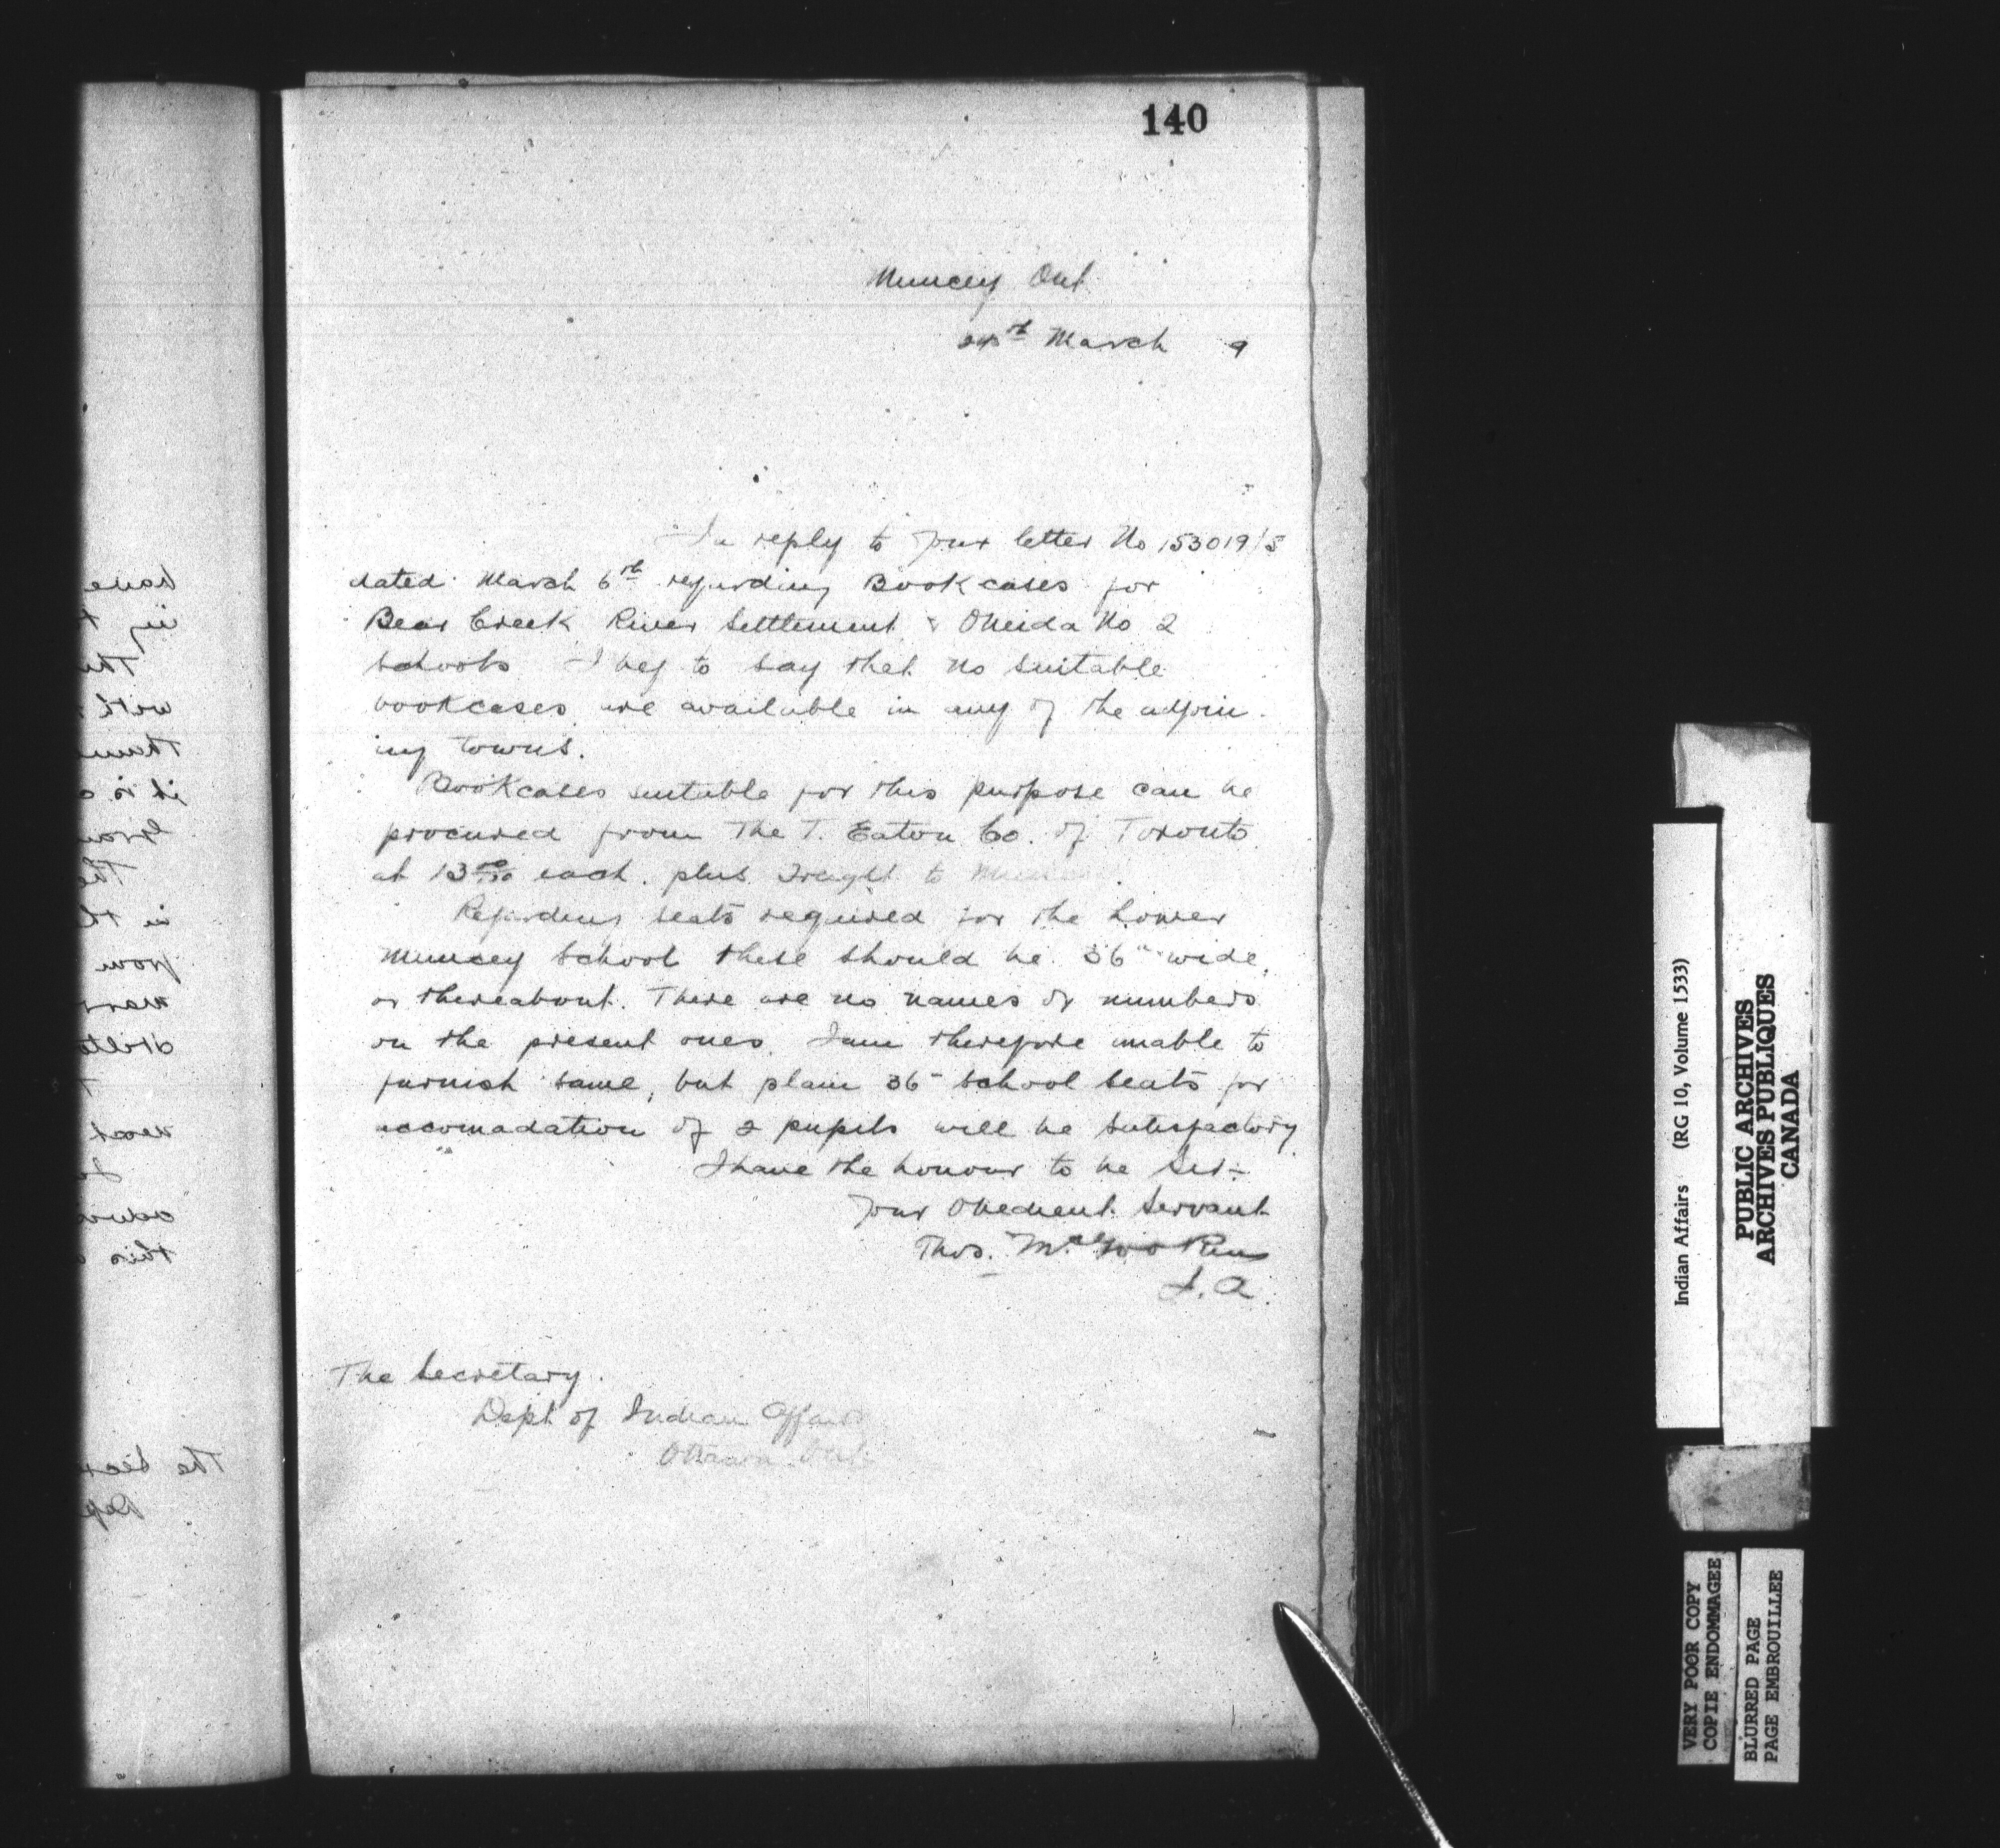 140
Muncey Ont
March 9
In reply to your letter No 153019/5
dated March 6th regarding Bookcases for
Bear Creek River Settlement & Oneida No 2
schools I beg to say that no suitable
bookcases are available in any of the adjoin
ing towns.
Bookcases suitable for this purpose can be
procured from The T. Eaton Co. of Toronto
at 13 00/100 each. plus Freight to Muncey
Regarding seats required for the Lower
Muncey School these should be 36" wide.
or thereabout. There are no names or numbers
on the present ones. I am therefore unable to
furnish same, but plain 36" school seats for
accomadation of 2 pupils will be satisfactory
I have the honour to be Sir:
Your Obedient Servant
Thos. Mc
I. A.
The Secretary.
Dept of Indian Affairs
Ottawa Ont
Indian Affairs (RG 10, Volume 1533)
PUBLIC ARCHIVES
ARCHIVES PUBLIQUES
CANADA
VERY POOR COPY
COPIE ENDOMMAGEE
BLURRED PAGE
PAGE EMBROUILLEE